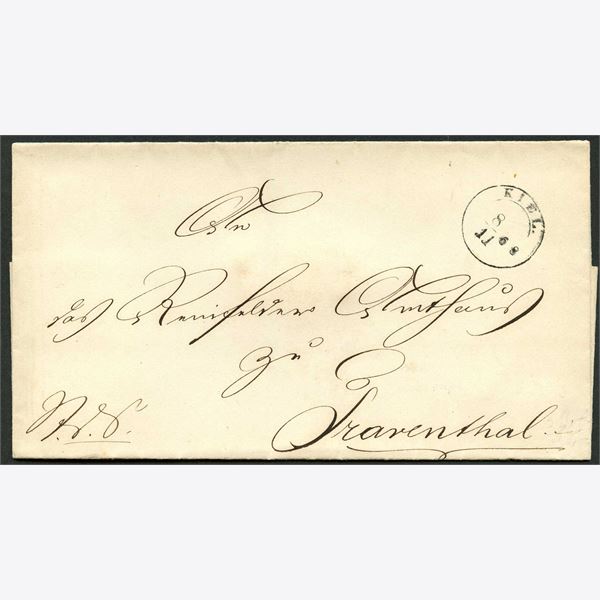 An
KIEL.
8/11 68
das Reinfelder Amthaus
zu
Traventhal.